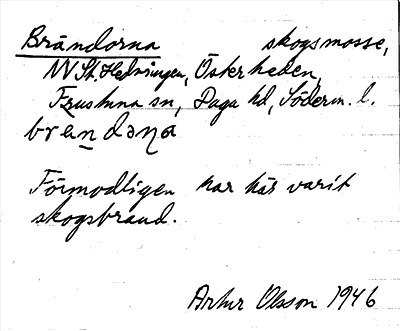 Brändorna skogsmosse,
NV St. Hedvingen, Österheden,
Frustuna sn, Daga hd, Söderm. l.
brandəna
Förmodligen har här varit
skogsbrand.
Artur Olsson 1946